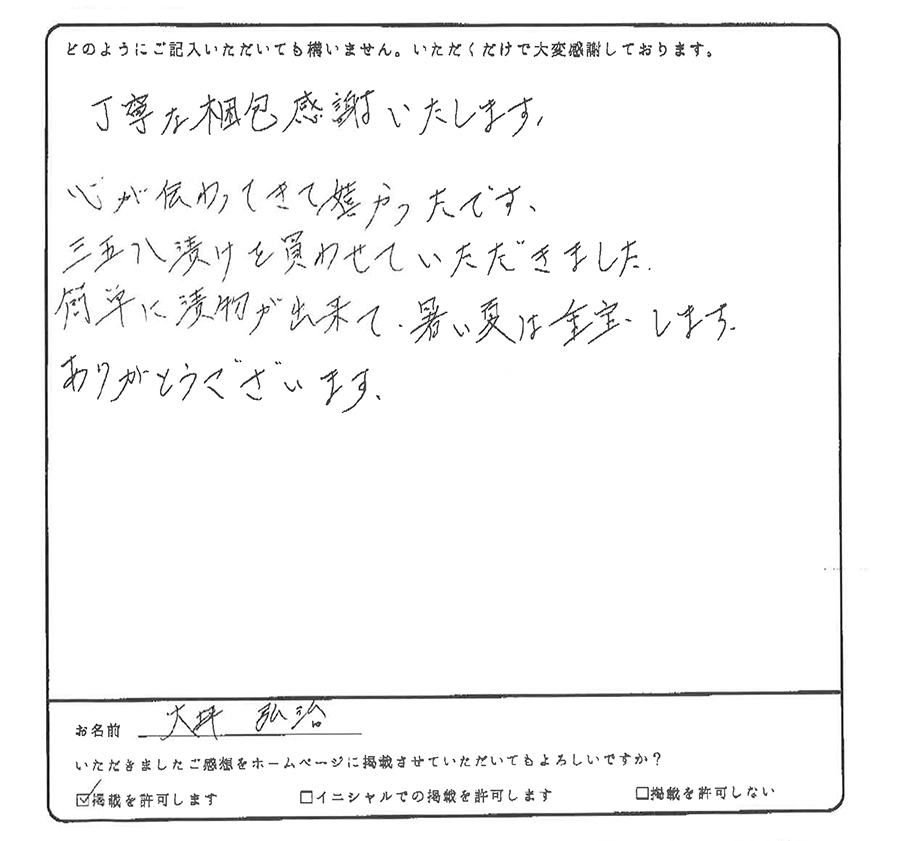 どのようにご記入いただいても構いません。いただくだけで大変感謝しております。
丁寧な梱包感謝いたします、
心が伝わってきて嬉やったです、
三五八漬けを買わせていただきました.
簡単に漬物が出来て、暑い夏は重宝します.
ありがとうございます、
お名前 大坪 弘治
いただきましたご感想をホームページに掲載させていただいてもよろしいですか?
☑掲載を許可します □イニシャルでの掲載を許可します □掲載を許可しない